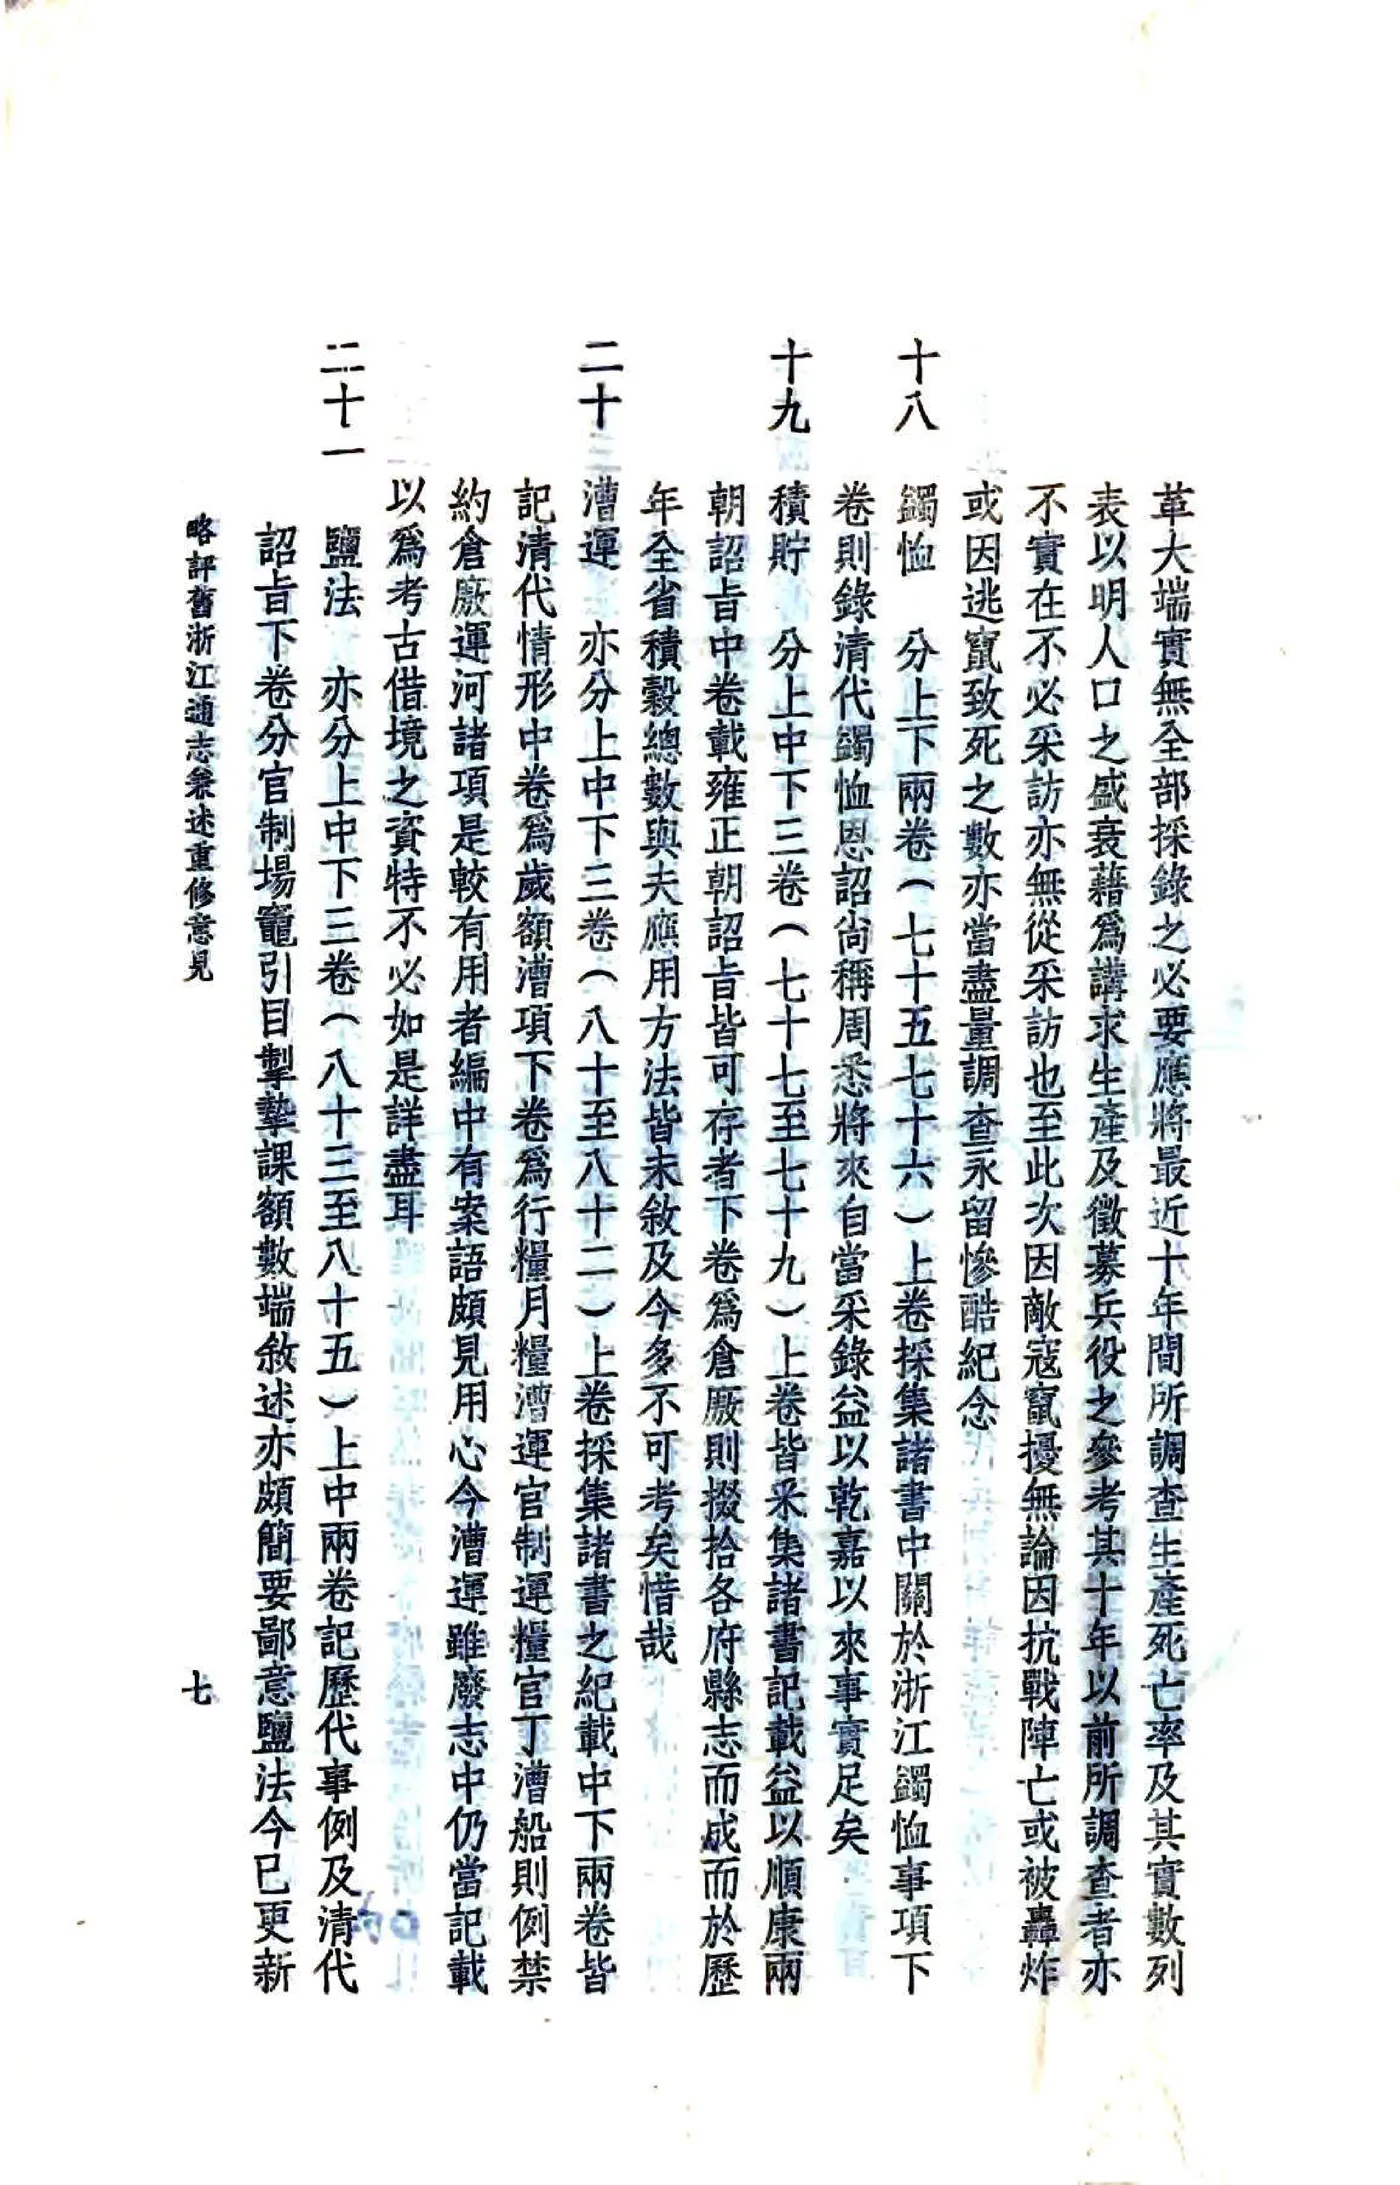 革大端實無全部採錄之必要應將最近十年間所調查生產死亡率及其實數列
表以明人口之盛衰藉爲講求生產及徵募兵役之參考其十年以前所調查者亦
不實在不必采訪亦無從采訪也至此次因敵寇竄擾無論因抗戰陣亡或被轟炸
或因逃竄致死之數亦當盡量調查永留慘酷紀念
十八 蠲恤 分上下兩卷（七十五七十六）上卷採集諸書中關於浙江蠲恤事項下
卷則錄清代蠲恤恩詔尙稱周悉將來自當采錄益以乾嘉以來事實足矣
十九 積貯 分上中下三卷（七十七至七十九）上卷皆采集諸書記載益以順康兩
朝詔旨中卷載雍正朝詔旨皆可存者下卷爲倉廒則掇拾各府縣志而成而於歷
年全省積穀總數與夫應用方法皆未敘及今多不可考矣惜哉
二十 漕運 亦分上中下三卷（八十至八十二）上卷採集諸書之紀載中下兩卷皆
記清代情形中卷爲歲額漕項下卷爲行糧月糧漕運官制運糧官丁漕船則例禁
約倉廒運河諸項是較有用者編中有案語頗見用心今漕運雖廢志中仍當記載
以爲考古借境之資特不必如是詳盡耳
二十一 鹽法 亦分上中下三卷（八十三至八十五）上中兩卷記歷代事例及清代
詔旨下卷分官制場竈引目掣摯課額數端敘述亦頗簡要鄙意鹽法今已更新
略評舊浙江通志兼述重修意見 七